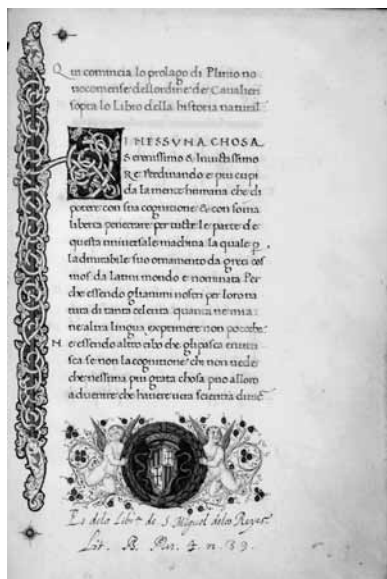 Qui comincia lo prologo di Plinio no
uocomense dellordine de Caualieri
sopra lo Libro della historia natural
DI NESSUNA CHOSA
Serenissimo & Inuictissimo
Re ferdinando e piu cupi
da la mente humana che di
potere con sua cognitione & con soma
liberta penetrare per tutte le parte de
questa uniuersale machina la quale p
ladmirabile suo ornamento da greci cos
mos da latini mondo e nominata Per
che essendo gli animi nostri per loro na
tura di tanta celerita quanta ne mia
ne altra lingua exprimere non potrebe
N e essendo altro cibo che gli pasca
sca se non la cognitione chi non uede
che nessuna piu grata chosa puo alloro
aduenire che hauere uera scientia di
Es dela Libr.ᵃ de S. Miguel delos Reyes
Lit. B. Plu. 4. n. 39.